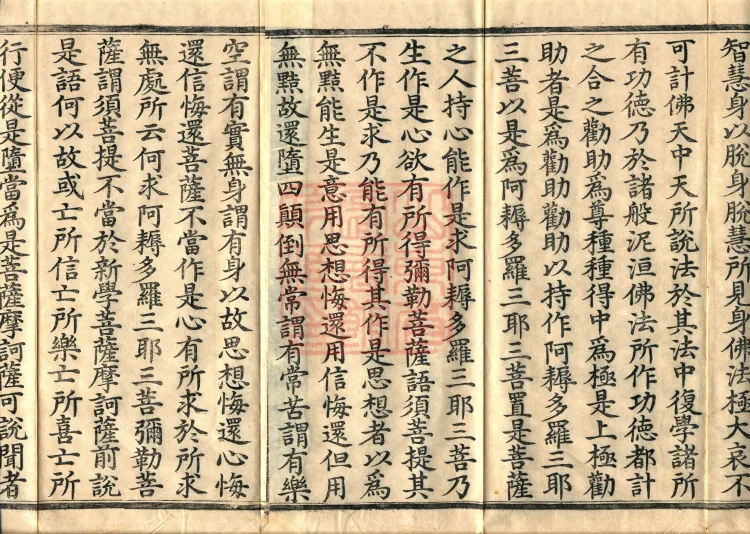 智慧身以脫身脫慧所見身佛法極大哀不
可計佛天中天所說法於其法中復學諸所
有功德乃於諸般泥洹佛法所作功德都計
之合之勸助為尊種種得中為極是上極勸
助者是為勸助勸助以持作阿耨多羅三耶
三菩以是爲阿耨多羅三耶三菩置是菩薩
之人持心能作是求阿耨多羅三耶三菩乃
生作是心欲有所得彌勒菩薩語須菩提其
不作是求乃能有所得其作是思想者以爲
無黠能生是意用思想悔還用信悔還但用
無黠故還墮四顛倒無常謂有常苦謂有樂
空謂有實無身謂有身以故思想悔還心悔
還信悔還菩薩不當作是心有所求於所求
無處所云何求阿耨多羅三耶三菩彌勒菩
薩謂須菩提不當於新學菩薩摩訶薩前說
是語何以故或亡所信亡所樂亡所喜亡所
行便從是墮當為是菩薩摩訶薩可說聞者